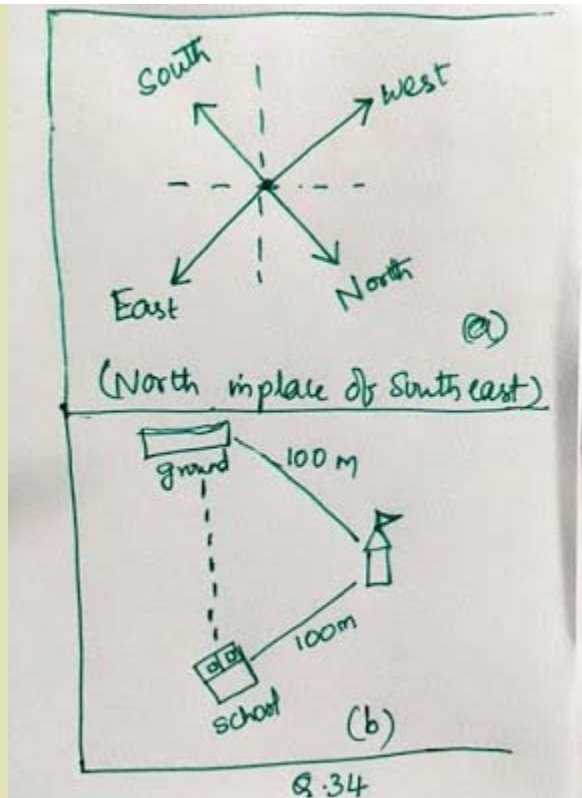 South
West
East
North
(a)
(North inplace of South east)
ground
100 M
100m
school
(b)
Q.34